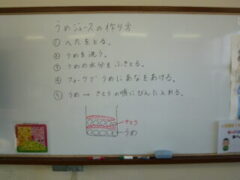 うめジュースの作り方
① へたをとる。
② うめを洗う。
③ うめの水分をふきとる。
④ フォークでうめにあなをあける。
⑤ うめ → さとうの順にびんに入れる。
さとう
うめ